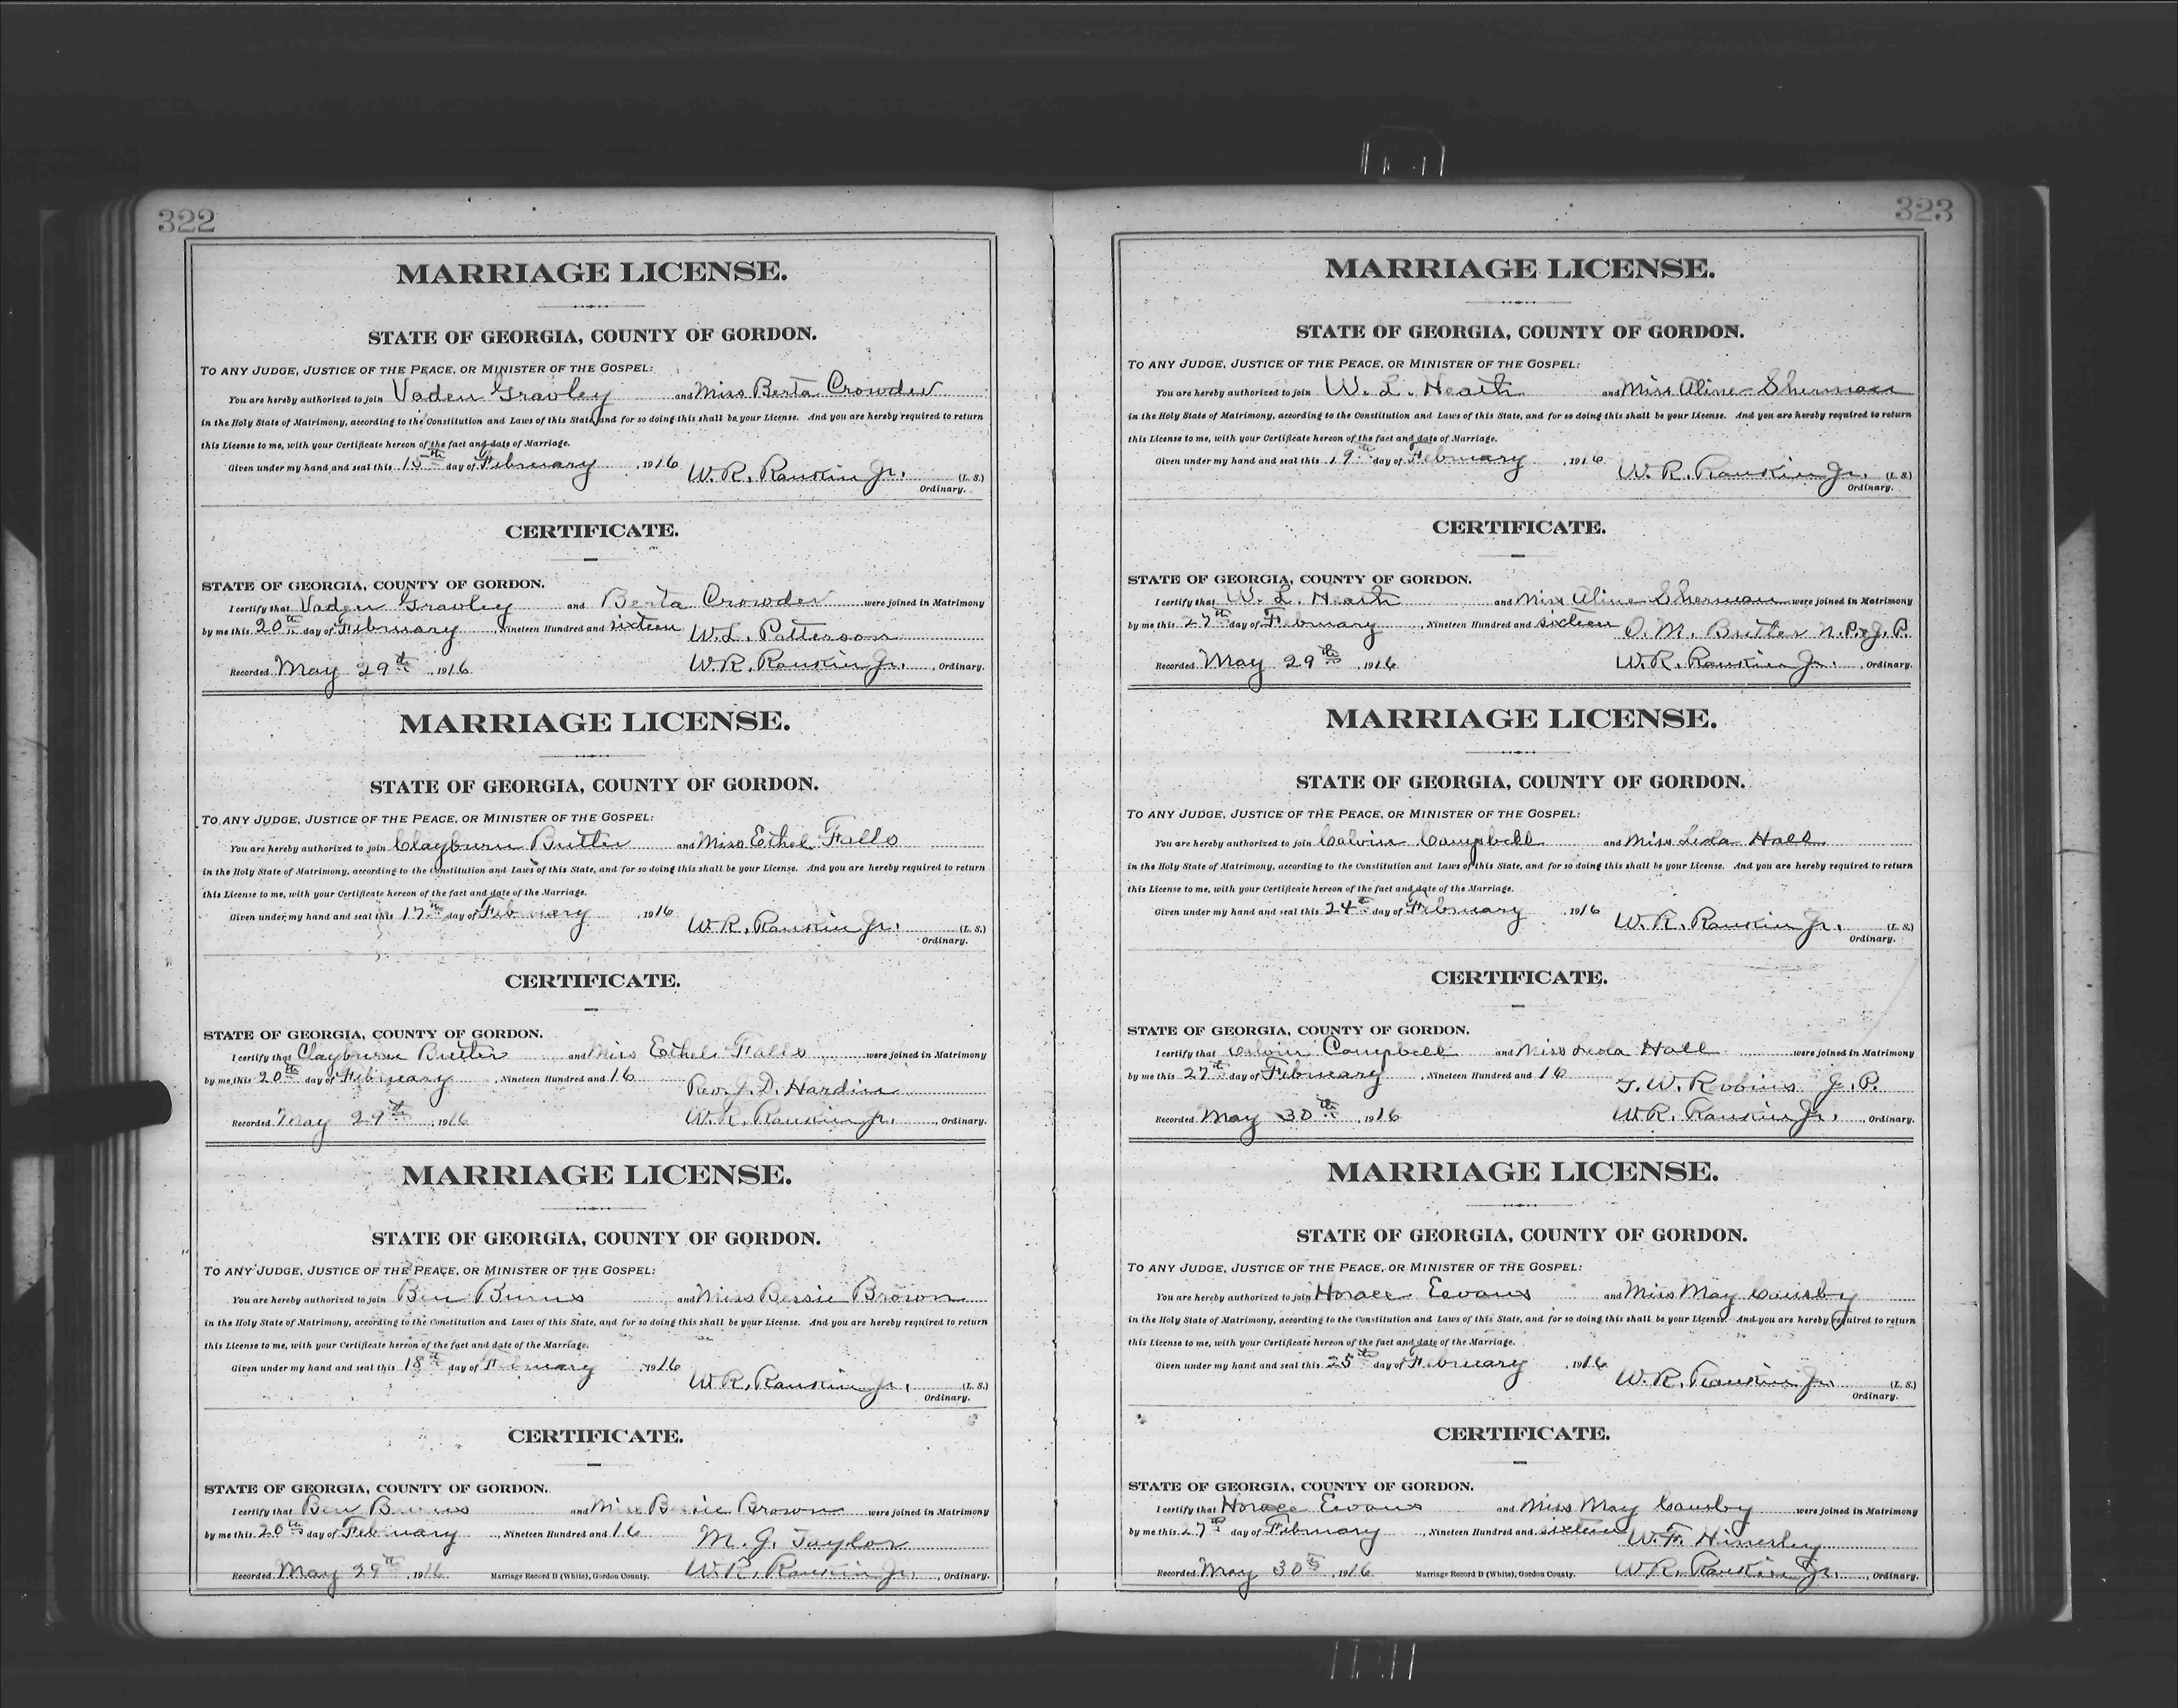 322
MARRIAGE LICENSE.
STATE OF GEORGIA, COUNTY OF GORDON.
TO ANY JUDGE, JUSTICE OF THE PEACE, OR MINISTER OF THE GOSPEL:
You are hereby authorized to join Vaden Gravley and Miss Berta Crowder
in the Holy State of Matrimony, according to the Constitution and Laws of this State, and for so doing this shall be your License. And you are hereby required to return
this License to me, with your Certificate hereon of the fact and date of Marriage.
Given under my hand and seal this 15th day of February, 1916 W. R. Rankin Jr. (L. S.)
Ordinary.
CERTIFICATE.
STATE OF GEORGIA, COUNTY OF GORDON.
I certify that Vaden Gravley and Berta Crowder were joined in Matrimony
by me this 20th day of February, Nineteen Hundred and sixteen W. L. Patterson
Recorded May 29th, 1916 W. R. Rankin Jr., Ordinary.
MARRIAGE LICENSE.
STATE OF GEORGIA, COUNTY OF GORDON.
TO ANY JUDGE, JUSTICE OF THE PEACE, OR MINISTER OF THE GOSPEL:
You are hereby authorized to join Clayburn Butler and Miss Ethel Falls
in the Holy State of Matrimony, according to the Constitution and Laws of this State, and for so doing this shall be your License. And you are hereby required to return
this License to me, with your Certificate hereon of the fact and date of the Marriage.
Given under my hand and seal this 17th day of February, 1916 W. R. Rankin Jr. (L. S.)
Ordinary.
CERTIFICATE.
STATE OF GEORGIA, COUNTY OF GORDON.
I certify that Clayburn Butler and Miss Ethel Falls were joined in Matrimony
by me this 20th day of February, Nineteen Hundred and 16 Rev. J. D. Hardin
Recorded May 29th, 1916 W. R. Rankin Jr., Ordinary.
MARRIAGE LICENSE.
STATE OF GEORGIA, COUNTY OF GORDON.
TO ANY JUDGE, JUSTICE OF THE PEACE, OR MINISTER OF THE GOSPEL:
You are hereby authorized to join Ben Burns and Miss Bessie Brown
in the Holy State of Matrimony, according to the Constitution and Laws of this State, and for so doing this shall be your License. And you are hereby required to return
this License to me, with your Certificate hereon of the fact and date of the Marriage.
Given under my hand and seal this 18th day of February, 1916 W. R. Rankin Jr. (L. S.)
Ordinary.
CERTIFICATE.
STATE OF GEORGIA, COUNTY OF GORDON.
I certify that Ben Burns and Miss Bessie Brown were joined in Matrimony
by me this 20th day of February, Nineteen Hundred and 16 M. G. Taylor
Recorded May 29th, 1916 Marriage Record D (White), Gordon County. W. R. Rankin Jr., Ordinary.
323
MARRIAGE LICENSE.
STATE OF GEORGIA, COUNTY OF GORDON.
TO ANY JUDGE, JUSTICE OF THE PEACE, OR MINISTER OF THE GOSPEL:
You are hereby authorized to join W. L. Heath and Miss Aline Sherman
in the Holy State of Matrimony, according to the Constitution and Laws of this State, and for so doing this shall be your License. And you are hereby required to return
this License to me, with your Certificate hereon of the fact and date of Marriage.
Given under my hand and seal this 19th day of February, 1916 W. R. Rankin Jr. (L. S.)
Ordinary.
CERTIFICATE.
STATE OF GEORGIA, COUNTY OF GORDON.
I certify that W. L. Heath and Miss Aline Sherman were joined in Matrimony
by me this 27th day of February, Nineteen Hundred and sixteen O. M. Butler N. P. & J. P.
Recorded May 29th, 1916 W. R. Rankin Jr., Ordinary.
MARRIAGE LICENSE.
STATE OF GEORGIA, COUNTY OF GORDON.
TO ANY JUDGE, JUSTICE OF THE PEACE, OR MINISTER OF THE GOSPEL:
You are hereby authorized to join Calvin Campbell and Miss Leola Hall
in the Holy State of Matrimony, according to the Constitution and Laws of this State, and for so doing this shall be your License. And you are hereby required to return
this License to me, with your Certificate hereon of the fact and date of the Marriage.
Given under my hand and seal this 24th day of February, 1916 W. R. Rankin Jr. (L. S.)
Ordinary.
CERTIFICATE.
STATE OF GEORGIA, COUNTY OF GORDON.
I certify that Calvin Campbell and Miss Leola Hall were joined in Matrimony
by me this 27th day of February, Nineteen Hundred and 16 G. W. Robbins J. P.
Recorded May 30th, 1916 W. R. Rankin Jr., Ordinary.
MARRIAGE LICENSE.
STATE OF GEORGIA, COUNTY OF GORDON.
TO ANY JUDGE, JUSTICE OF THE PEACE, OR MINISTER OF THE GOSPEL:
You are hereby authorized to join Horace Evans and Miss May Causby
in the Holy State of Matrimony, according to the Constitution and Laws of this State, and for so doing this shall be your License. And you are hereby required to return
this License to me, with your Certificate hereon of the fact and date of the Marriage.
Given under my hand and seal this 25th day of February, 1916 W. R. Rankin Jr. (L. S.)
Ordinary.
CERTIFICATE.
STATE OF GEORGIA, COUNTY OF GORDON.
I certify that Horace Evans and Miss May Causby were joined in Matrimony
by me this 27th day of February, Nineteen Hundred and sixteen W. F.
Recorded May 30th, 1916 Marriage Record D (White), Gordon County. W. R. Rankin Jr., Ordinary.